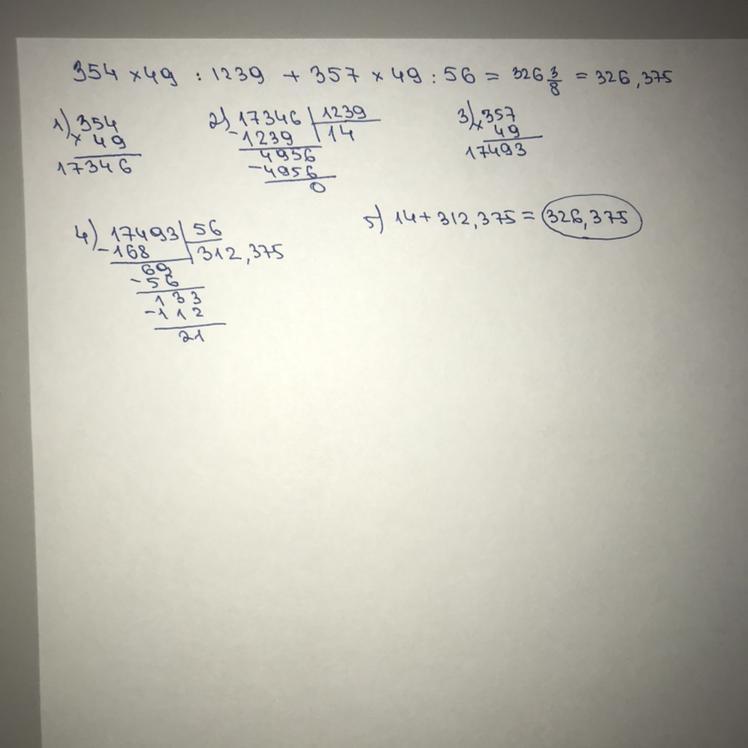 354 × 49 : 1239 + 357 × 49 : 56 = 326 3/8 = 326,375
1) 354
× 49
17346
2) 17346 | 1239
-1239 | 14
4956
-4956
0
3) 357
× 49
17493
4) 17493 | 56
-168 | 312,375
69
-56
133
-112
21
5) 14 + 312,375 = 326,375